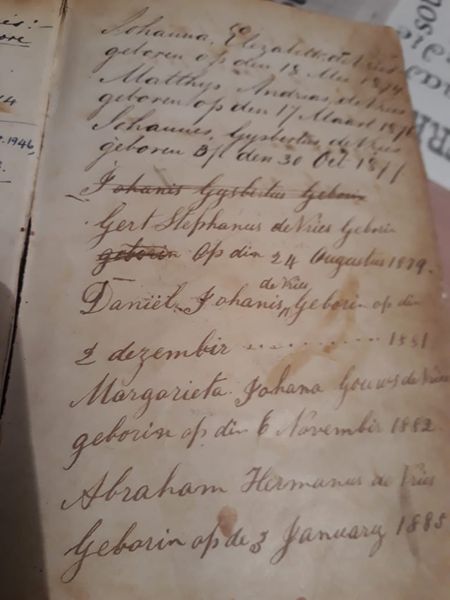 Johanna, Elizabeth de Vries
geboren op den 18 Mei 1874
Matthys Andreas de Vries
geboren op den 17 Maart 1876
Johannes, Gysbertus de Vries
geboren Op den 30 Oct 1877
Johanis Gysbertus Geborin
Gert Stephanus de Vries Geborin
geborin Op din 24 Augustus 1879.
de Vries
Daniël Johanis, Geborin op din
2 dezembir .......... 1881
Margarieta Johana Gouws de Vries
geborin op din 6 Novembir 1882
Abraham Hermanus de Vries
Geborin op de 3 January 1885
1946,